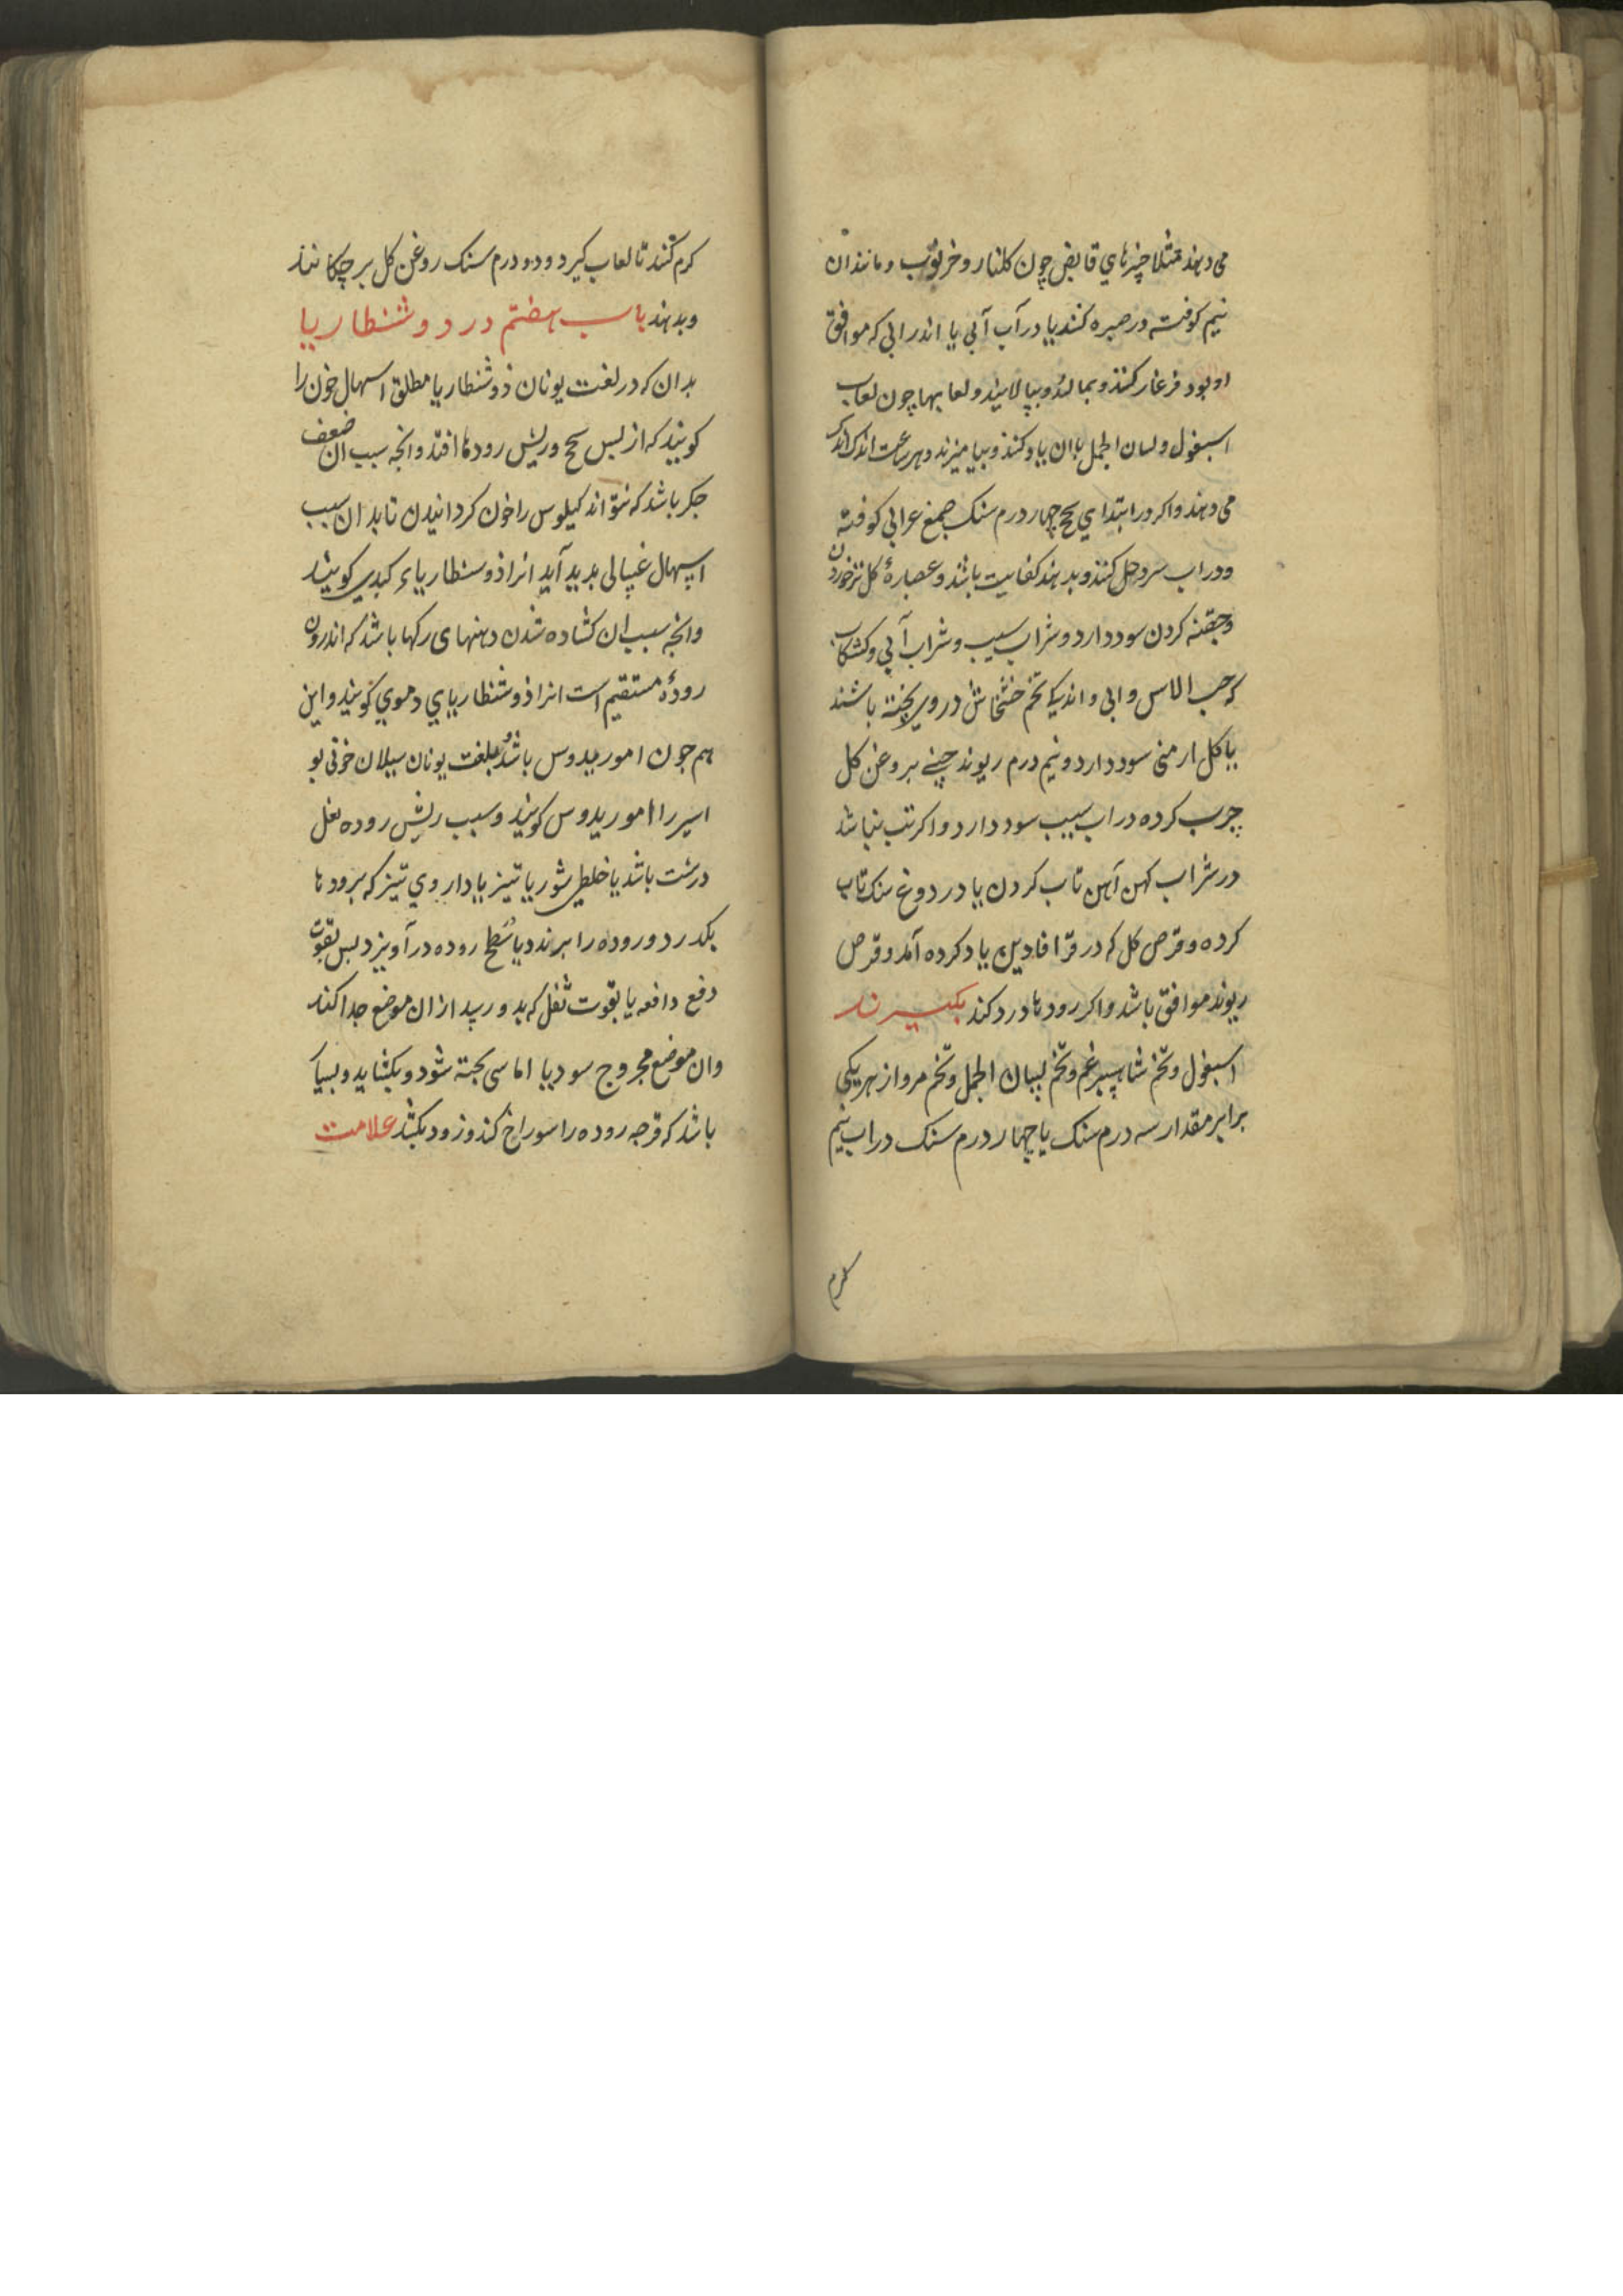 می دهند مثلا چیزهای قابض چون کلنار و خرنوب و مانند ان
نیم کوفته در صره کنند یا در آب آبی یا اندر ابی که موافق
او بود فرغار کنند و بمالند و بپالایند و لعابها چون لعاب
اسبغول و لسان الحمل با ان یاد کنند و بیامیزند و هر ساعت اندک اندک
می دهند و اکر در ابتدای سحج چهار درم سنک صمغ عربی کوفته
و در اب سرد حل کنند و بدهند کفایت باشد و عصاره کل تر خوردن
و حقنه کردن سود دارد و شراب سیب و شراب آبی و کشکاب
که حب الاس و ابی و اندکی تخم خشخاش در وی پخته باشند
با کل ارمنی سود دارد و نیم درم ریوند چینی بروغن کل
چرب کرده در اب سیب سود دارد و اکر تب نباشد
در شراب کهن آهن تاب کردن یا در دوغ سنک تاب
کرده و قرص کل که در قرافادین یاد کرده آمد و قرص
ریوند موافق باشد و اکر رودها درد کند بکیرند
اسبغول و تخم شاهسپرغم و تخم لسان الحمل و تخم مرو از هر یکی
برابر مقدار سه درم سنک یا چهار درم سنک در اب نیم
کرم
کرم کنند تا لعاب کیرد و دو درم سنک روغن کل بر چکانند
و بدهند باب هفتم در ذوشنطاریا
بدان که در لغت یونان ذوشنطاریا مطلق اسهال خون را
کویند که از پس سحج و ریش رودها افتد و انچه سبب ان ضعف
جکر باشد که نتواند کیلوس را خون کردانیدن تا بدان سبب
اسهال غسالی بدید آید انرا ذوسنطاریاء کبدی کویند
و انچه سبب ان کشاده شدن دهنهای رکها باشد که اندرون
روده مستقیم است انرا ذوشنطاریای دموی کویند و این
هم جون اموریدوس باشد و بلغت یونان سیلان خون بو
اسیر را اموریدوس کویند و سبب ریش روده ثفل
درشت باشد یا خلطی شور یا تیز یا داروی تیز که برودها
بکذرد و روده را برندد یا سطح روده در آویزد بس بقوت
دفع دافعه یا بقوت ثفل که بدو رسد از ان موضع جدا کند
وان موضع مجروح سود یا اماسی بخته شود و بکشاید و بسیا
باشد که قرحه روده را سوراخ کند و زود بکشد علامت